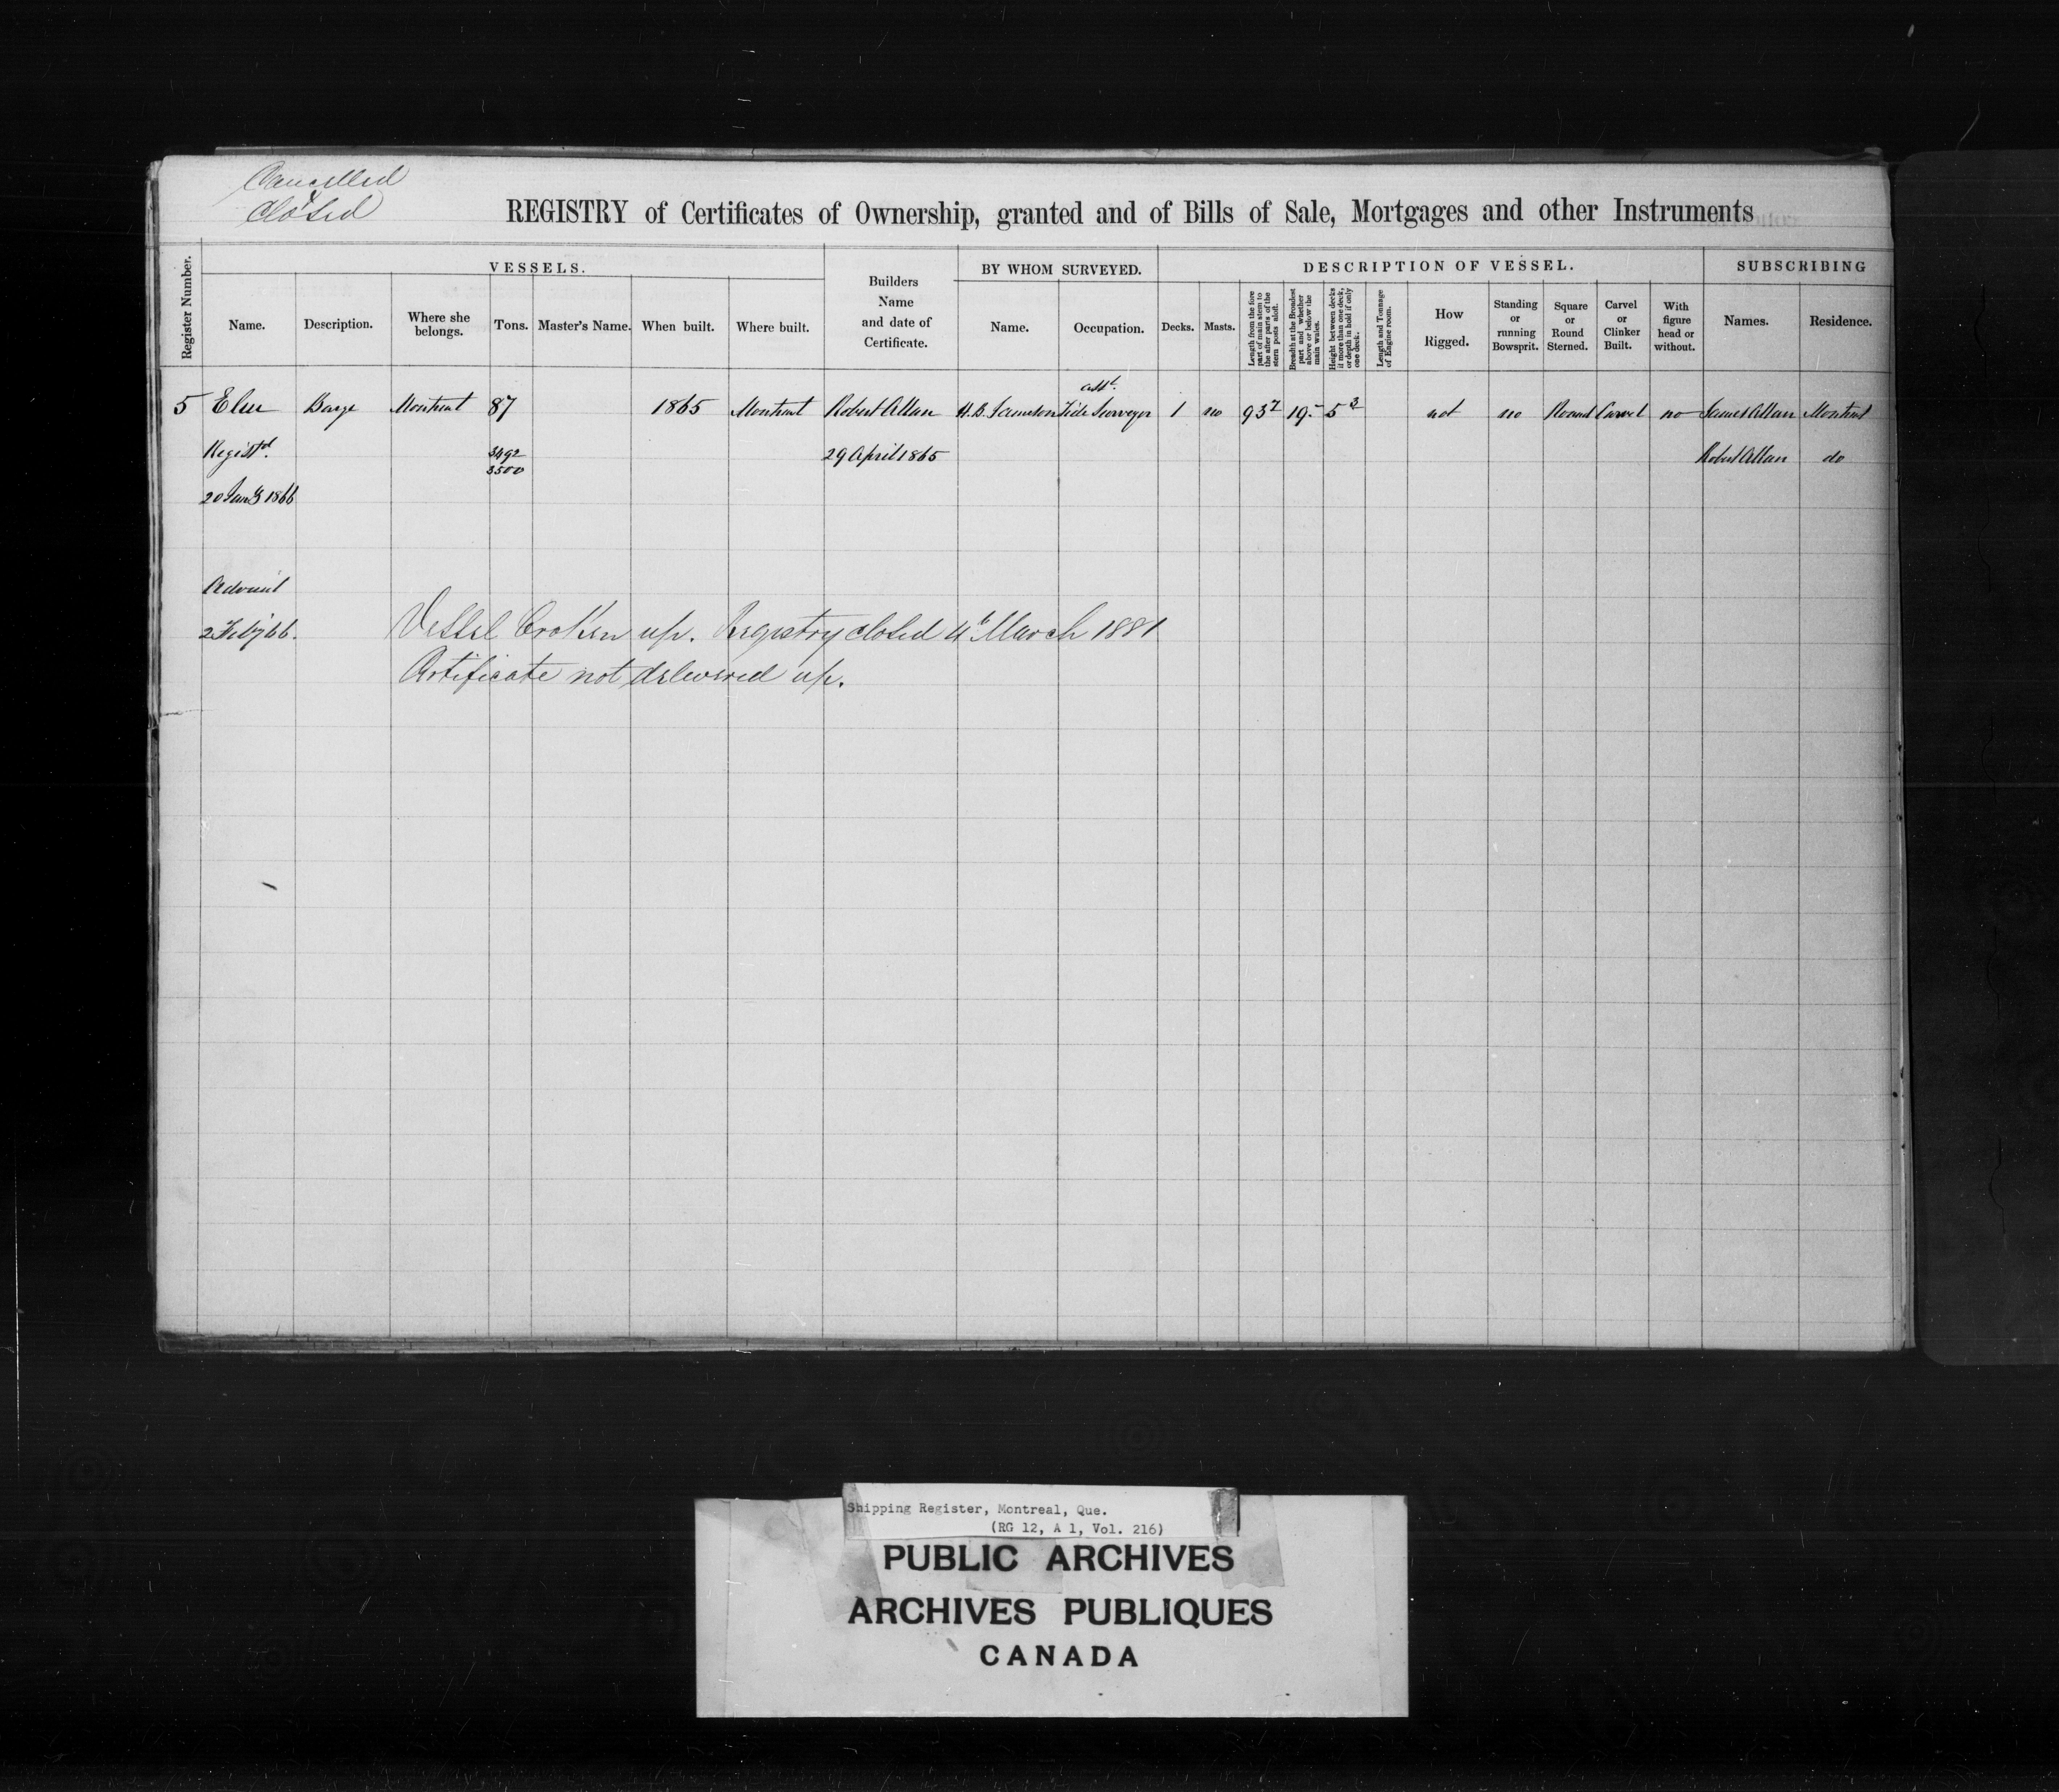 Cancelled
Closed
REGISTRY of Certificates of Ownership, granted and of Bills of Sale, Mortgages and other Instruments
Register Number.
VESSELS.
Name.
Description.
Where she belongs.
Tons.
Master's Name.
When built.
Where built.
Builders Name and date of Certificate.
BY WHOM SURVEYED.
Name.
Occupation.
DESCRIPTION OF VESSEL.
Decks.
Masts.
Length from the fore part of main stem to the after parts of the stern posts aloft.
Breadth at the Broadest part and whether above or below the main wales.
Height between decks if more than one deck, or depth in hold if only one deck.
Length and Tonnage of Engine room.
How Rigged.
Standing or running Bowsprit.
Square or Round Sterned.
Carvel or Clinker Built.
With figure head or without.
SUBSCRIBING
Names.
Residence.
5 Barge Montreal 87 1865 Montreal Robert Allan H. B. Asst. Tide Surveyor 1 no 93 19.- 5 3 not no Round Carvel no James Allan Montreal
Registd. 3492 3500 29 April 1865 Robert Allan do
20 Jany 1866
2 Feby 66.
Vessel broken up. Registry closed 4th March 1881
Certificate not delivered up.
Shipping Register, Montreal, Que.
(RG 12, A 1, Vol. 216)
PUBLIC ARCHIVES
ARCHIVES PUBLIQUES
CANADA